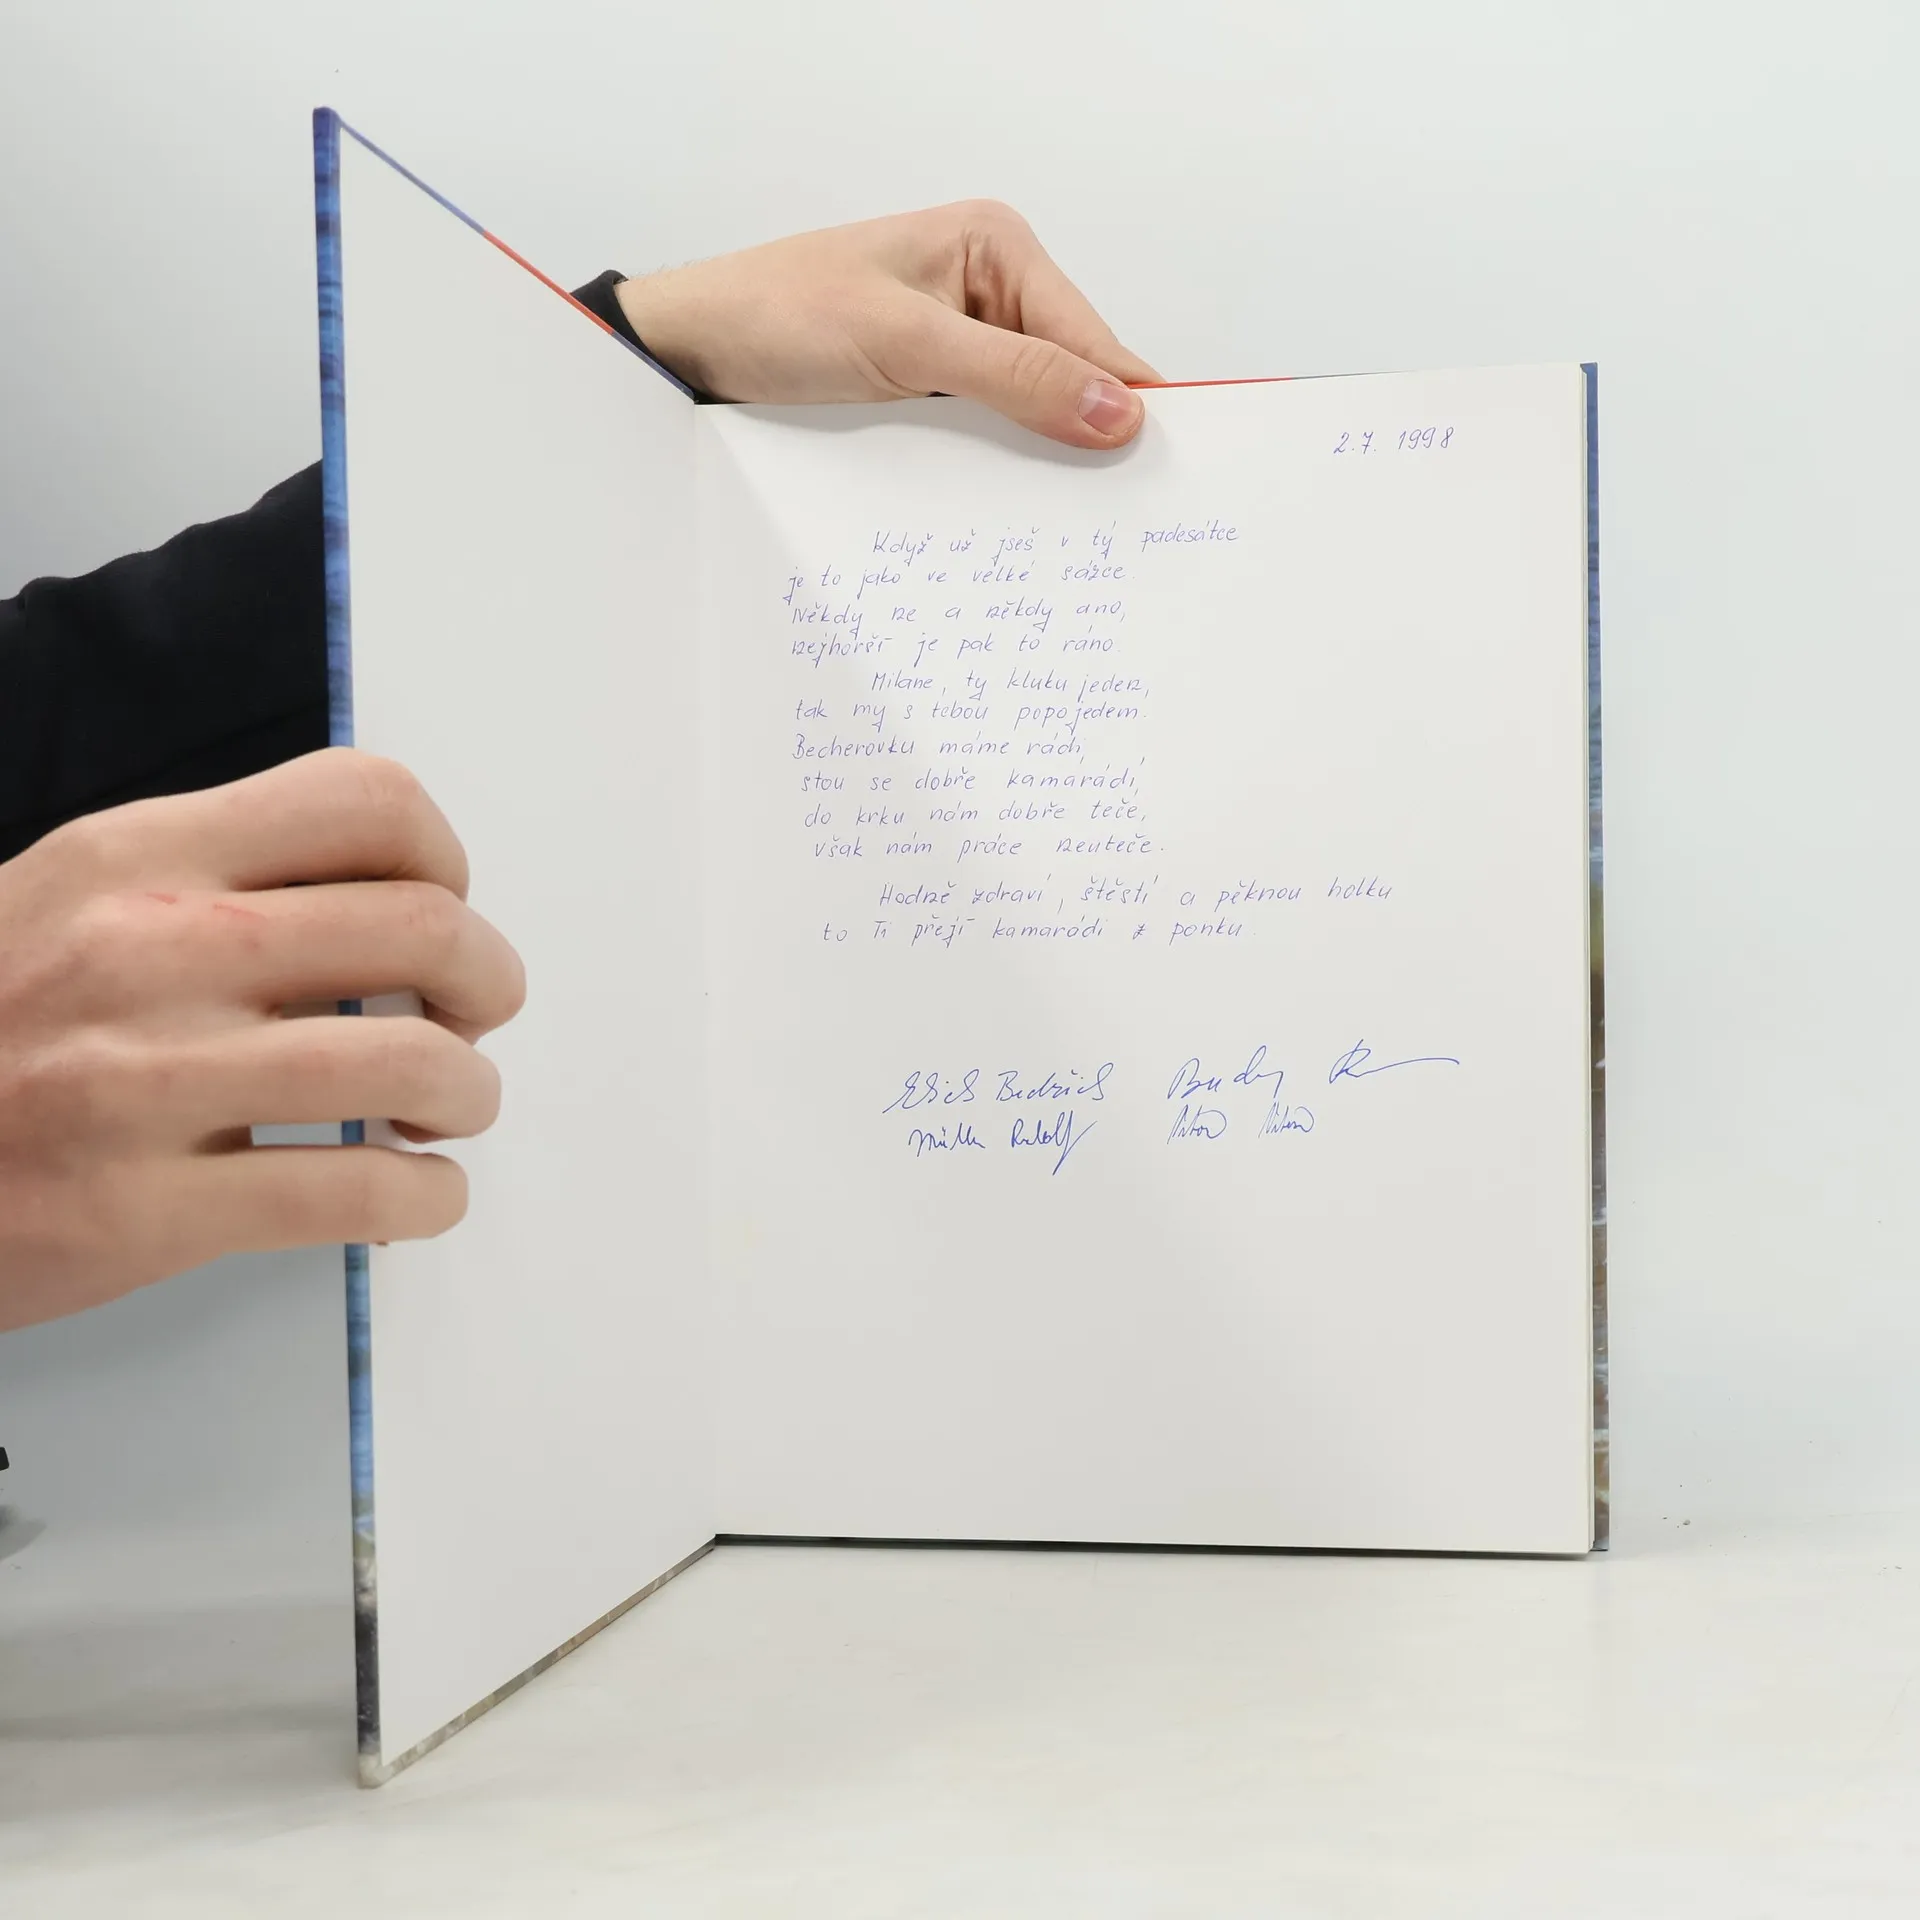 2.7. 1998
Když už jseš v tý padesátce
je to jako ve velké sázce.
Někdy ne a někdy ano,
nejhorší je pak to ráno.
Milane, ty kluku jeden,
tak my s tebou popojedem.
Becherovku máme rádi,
stou se dobře kamarádí,
do krku nám dobře teče,
však nám práce neuteče.
Hodně zdraví, štěstí a pěknou holku
to Ti přejí kamarádi z ponku.
Bedřich
Müller Rudolf